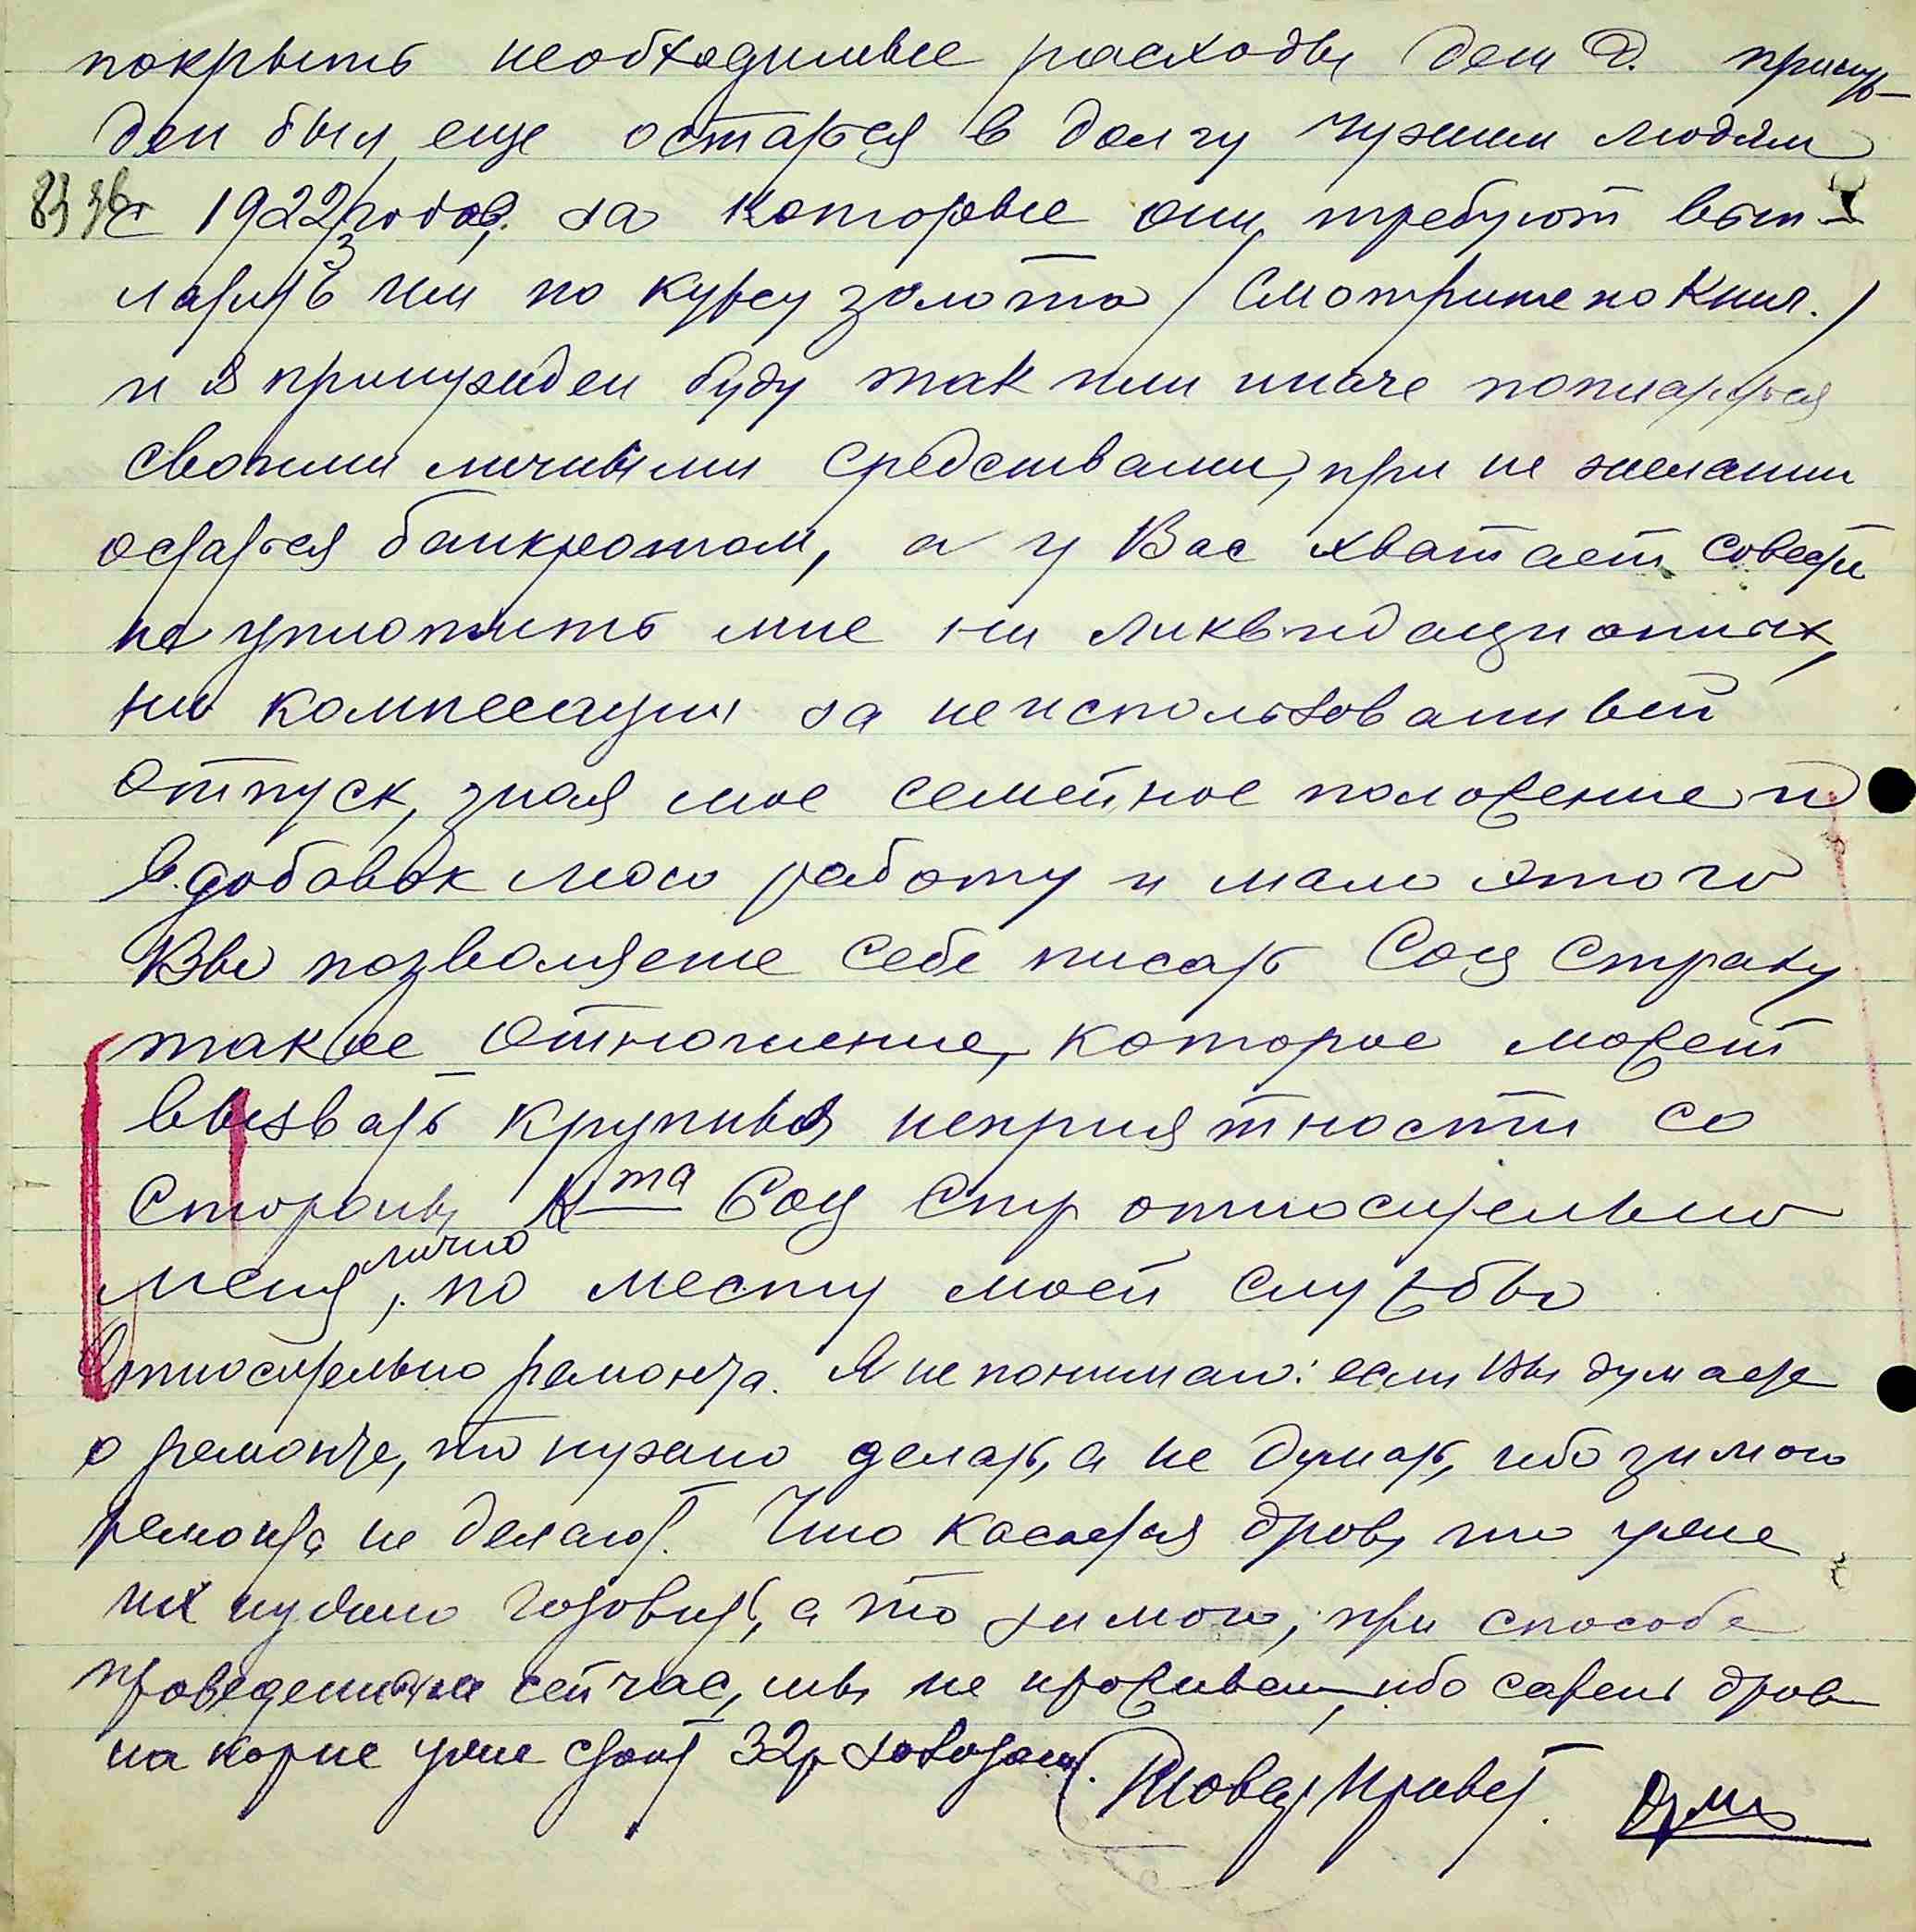 покрыть необходимые расходы дет Д. принуж-
ден был еще остаться в долгу чужим людям
с 1922/3 годов, за которые они требуют вып-
латить им по курсу золота /смотрите по Книг./
и я принужден буду так или иначе поплатиться
своими личными средствами, при не желании
остаться банкротом, а у Вас хватает совести
не уплотить мне ни ликвидационных,
ни компесации за неиспользованный
отпуск, зная мое семейное положение и
в добавок мою работу и мало этого
Вы позволяете себе писать Соц Страху
такое отношение, которое может
вызвать крупные неприятности со
стороны К-та Соц Стр относительно
меня лично, по месту моей службы
Относительно ремонта. Я не понимаю: если Вы думаете
о ремонте, то нужно делать, а не думать, ибо зимою
ремонта не делают. Что касается дров, то уже
их нужно готовить, а то зимою, при способе
проведенном сейчас, мы не проживем, ибо сажень дров
на корне уже стоит 32р
Привет.